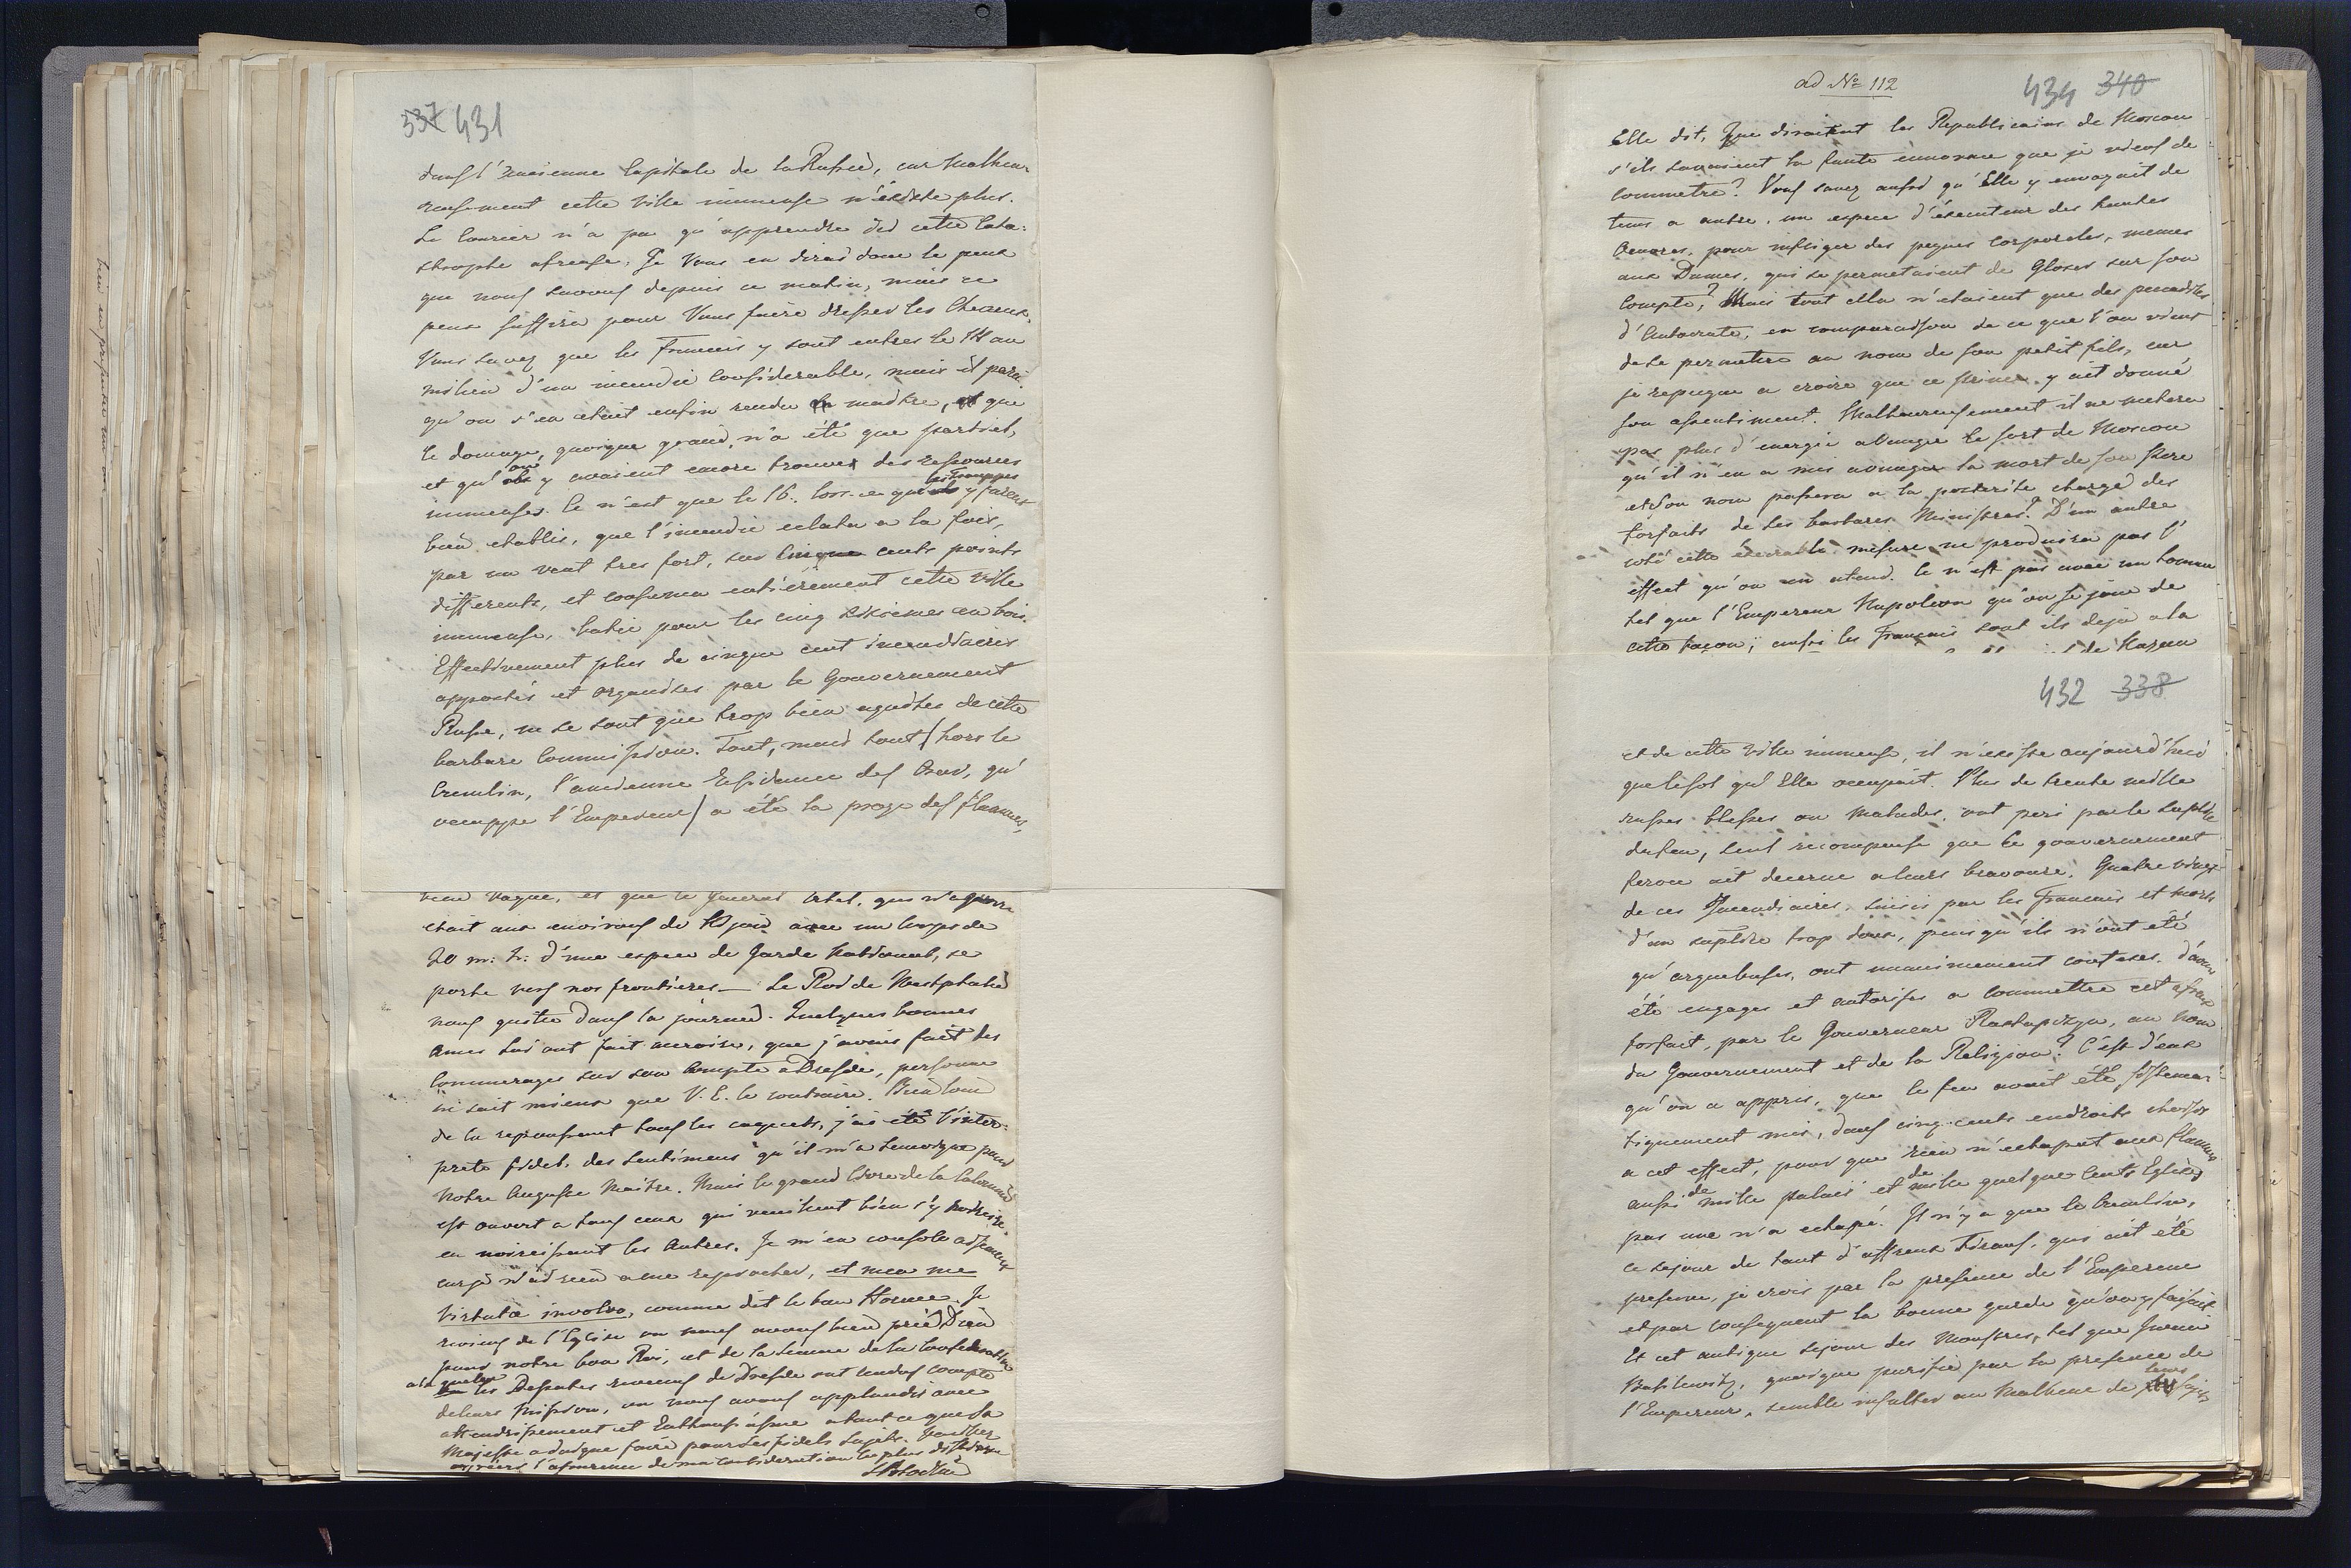 337 431
dans l'Ancienne Capitale de la Russie, car malheu-
reusement cette Ville immense n'éxiste plus.
Le Courier n'a pu qu'apprendre ici cette Cata-
strophe afreuse. Je Vous en dirai donc le peux
que nous savons depuis ce matin, mais ce
peux suffira pour Vous faire dresser les Cheveux.
Vous savez que les Francois y sont entres le 14 au
milieu d'un incendie Considerable, mais il parai
qu'on s'en etait enfin rendu maitre, et que
le domage, quoique grand, n'a été que partiel,
et qu'on y avaient encore trouvez des ressources
immenses. Ce n'est que le 16. lors-ce que les Trouppes y furent
bien etablis, que l'incendie eclata a la fois,
par un vent tres fort, sur Cinque cents points
differents, et consuma entièrement cette ville
immense, batie pour les cinq sixiemes en bois.
Effectivement plus de cinque cent incendiaires
appostés et organises par le Gouvernement
Russe, ne se sont que trop bien aquites de cette
barbare Commission. Tout, mais tout / hors le
Cremlin, l'ancienne Residence des Czar, qu'
occuppe l'Empereur / a été la proye des flammes,
bien vague, et que le General Ertel, qui n'aguerre
etait aux environs de Mozir avec un Corps de
20 m: h: d'une espece de Garde Nationnal, se
porte vers nos frontieres — Le Roi de Westphalie
nous quitte dans la journée. Quelques bonnes
Ames lui ont fait accroire, que j'avais fait des
Commerages sur son Compte a Dresde, personne
ne sait mieux que V. E. le contraire. Bien loin
de la repoussant tous les caquets, j'ai été l'inter-
prete fidel, des sentimens qu'il m'a temoigne pour
Notre Auguste Maitre. Mais le grand Livre de la Calomnie
est ouvert a tous ceux qui veuillent bien s'y
en noircissant les Autres. Je m'en console aisement
car je n'ai rien a me reprocher, et mea me
Virtute involvo, comme dit le bon Horace. Je
reviens de l'Eglise ou nous avons bien prié Dieu
pour notre bon Roi, et de la Seance de la Confederation
a la quelle les Deputes revenus de Dresde ont rendus compte
de leur Mission, ou nous avons applaudis avec
attendrissement et Enthousiasme a tout ce que Sa
Majesté a daigne faire pour Ses fidels Sujets. Veuillez
agréer l'assurence de ma Consideration la plus distingue
ad No 112
434 340
Elle dit, Que diraient les Republicains de Moscou
s'ils savaient la faute ennorme que je viens de
commetre? Vous savez aussi qu'Elle y envoyait de
tems a autre, un espece d'éxecuteur des hautes
Oeuvres, pour infliger des peynes Corporeles, memes
aux Dames, qui se permetaient de Gloser sur son
Compte? Mais tout cela n'etaient que des peccadilles
d'Autocrate, en comparaison de ce que l'on vient
de se permetre au nom de son petit fils, car
je repugne a croire que ce Prince y ait donné
son assentiment. Malheureusement il ne metera
pas plus d'energie a venger le sort de Moscou
qu'il n'en a mis a venger la mort de son Pere
et son nom passera a la posterite chargé des
forfaits de ses barbares Ministres? D'un autre
coté cette éxecrable mesure ne produira pas l'
effect qu'on en atend. Ce n'est pas avec un homme
tel que l'Empereur Napoleon qu'on se joue de
cette façon; aussi les Français sont ils deja a la
de Kazan
432 338
et de cette Ville immense, il n'existe aujourd'hui
que le sol qu'Elle occupait. Plus de trente mille
russes blesses ou malades, ont peri par le suplice
du feu, seul recompense que le gouvernement
feroce ait decerne a leurs bravoure. Quatre vingt
de ces Incendiaires, saisis par les Francois et morts
d'un suplice trop doux, puisqu'ils n'ont été
qu'arquebuses, ont unanimement confesses d'avoir
été engages et autorises a commettre cet afreux
forfait, par le Gouverneur Rastopczyn, au nom
du Gouvernement et de la Religion? C'est d'eux
qu'on a appris, que le feu avait été sistema-
tiquement mis, dans cinq-cents endroits choisis
a cet effect, pour que rien n'echapat aux flammes
aussi de mille palais et de mille quelque Cents Eglises
pas une n'a echapé. Il n'y a que le Cremlin,
ce sejour de tant d'affreux Tirans, qui ait été
preserve, je crois par la presence de l'Empereur
et par consequent la bonne garde qu'on y faisait
Et cet antique sejour des Monstres, tel que Iwan
Basilewitz, quoique purifié par la presence de
l'Empereur, semble insulter au malheur de leurs sujets